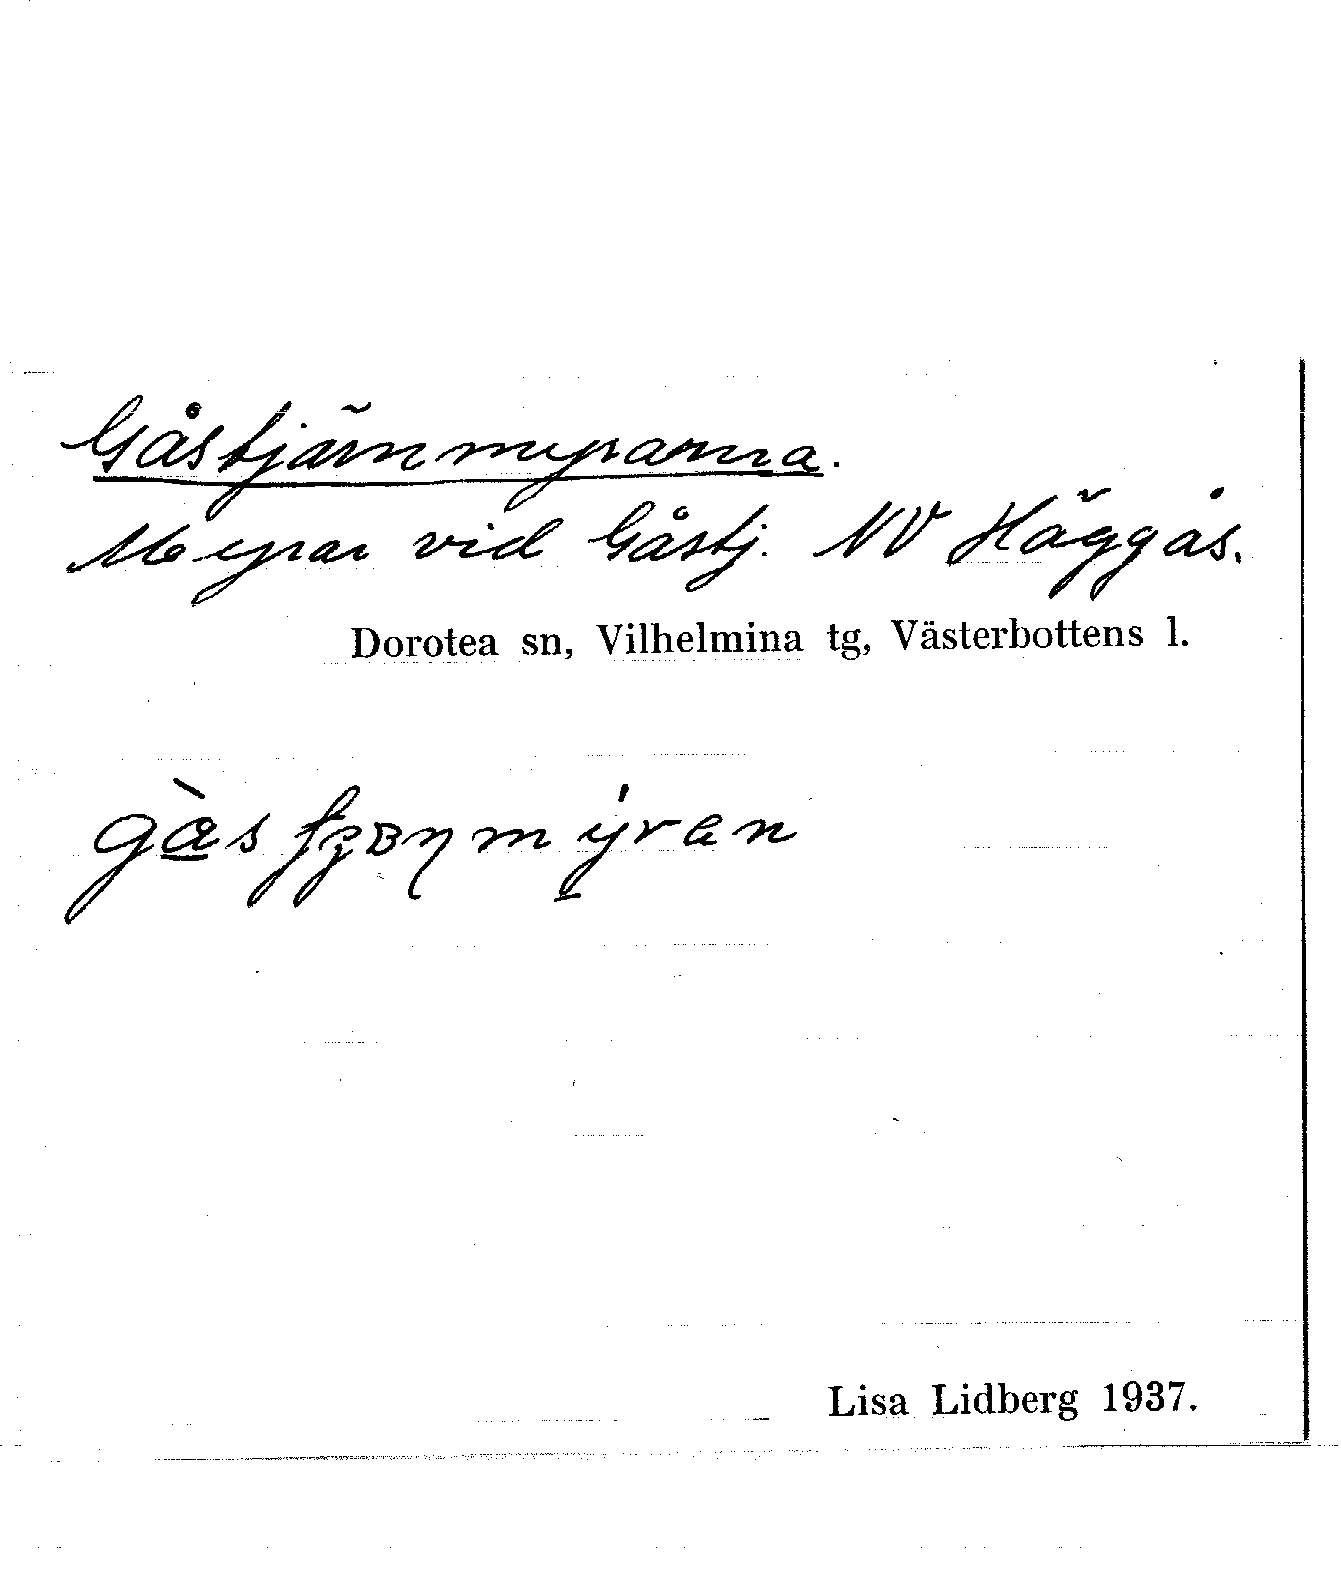 Gåstjärnmyrarna.
Myrar vid Gåstj. NV Häggås.
Dorotea sn, Vilhelmina tg, Västerbottens l.
Lisa Lidberg 1937.